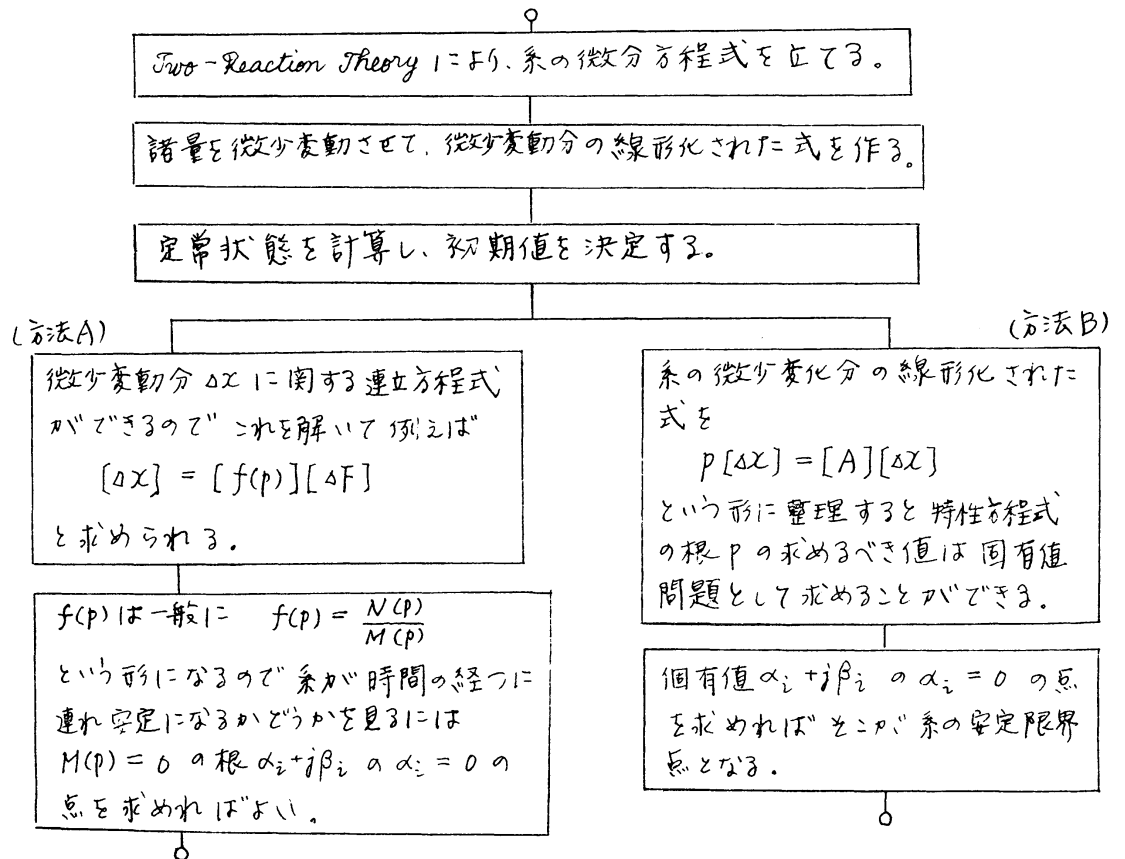 Two-Reaction Theory により、系の微分方程式を立てる。
諸量を微少変動させて、微少変動分の線形化された式を作る。
定常状態を計算し、初期値を決定する。
(方法A)
微少変動分 Δx に関する連立方程式
ができるので これを解いて 例えば
[Δx] = [f(p)][ΔF]
と求められる。
f(p)は一般に f(p) = N(p)/M(p)
という形になるので 系が時間の経つに
連れ安定になるかどうかを見るには
M(p) = 0 の根 αi+jβi の αi = 0 の
点を求めればよい。
(方法B)
系の微少変化分の線形化された
式を
p[Δx] = [A][Δx]
という形に整理すると特性方程式
の根 p の求めるべき値は 固有値
問題として求めることができる。
個有値 αi+jβi の αi = 0 の点
を求めれば そこが系の安定限界
点となる.